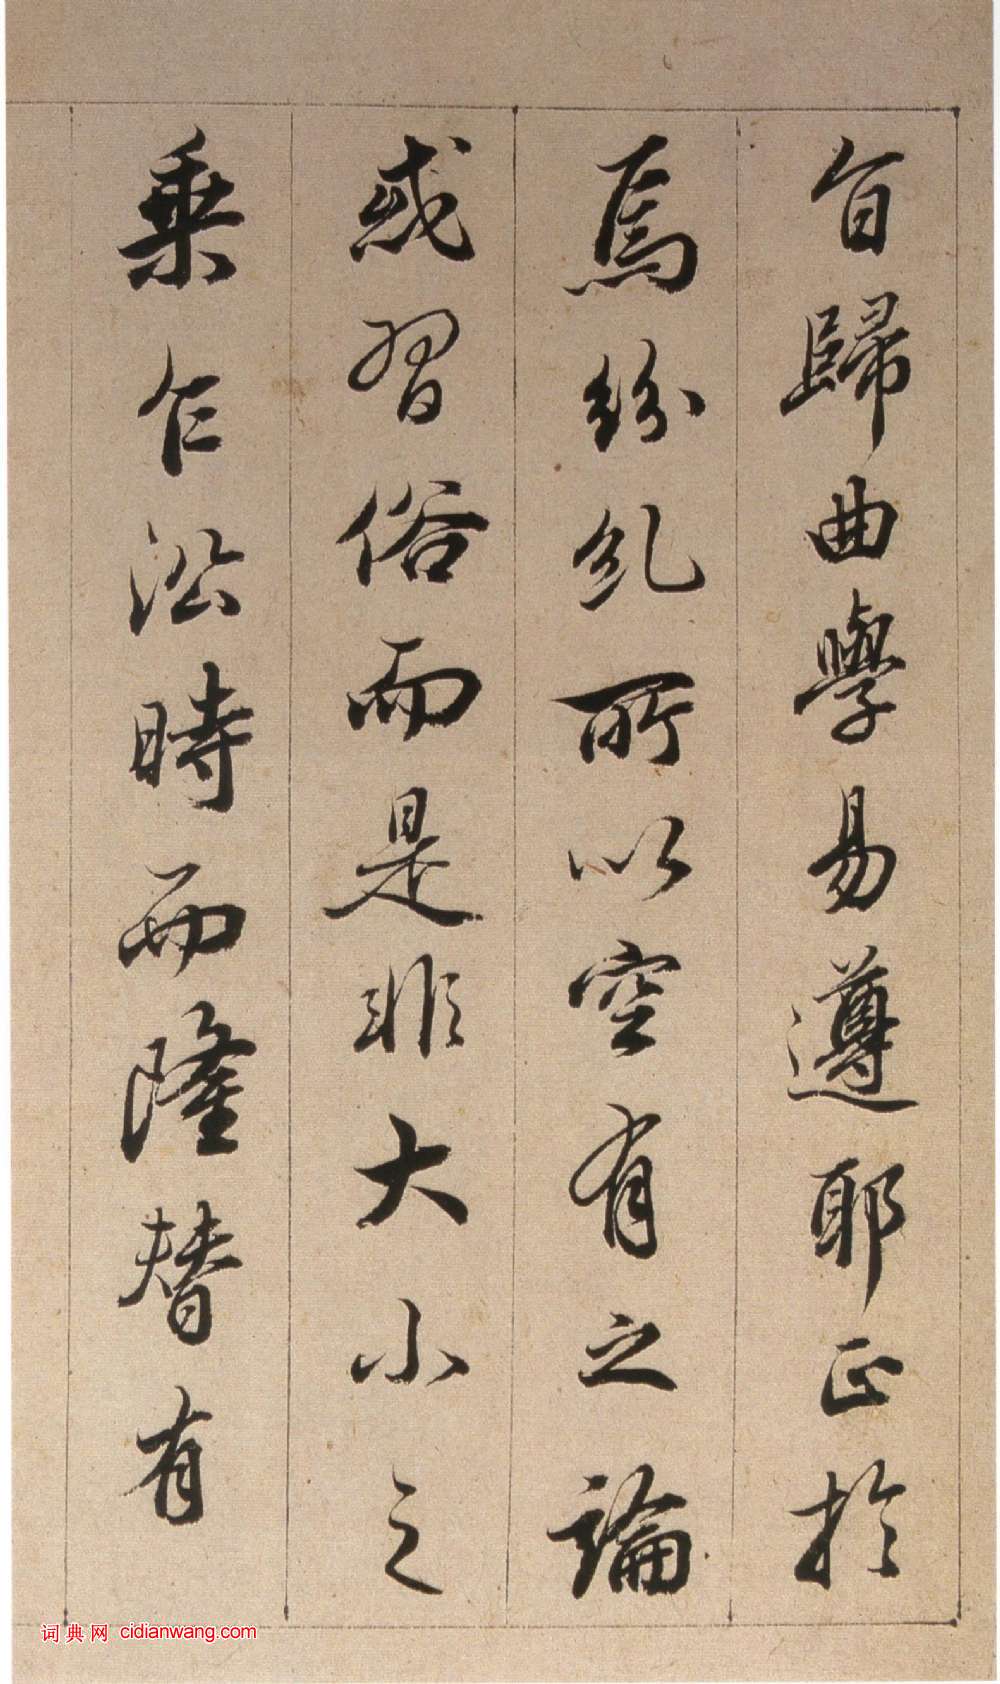 旨歸曲學易遵耶正於
焉紛糺所以空有之論
或習俗而是非大小之
乘乍沿時而隆替有
词典网 cidianwang.com